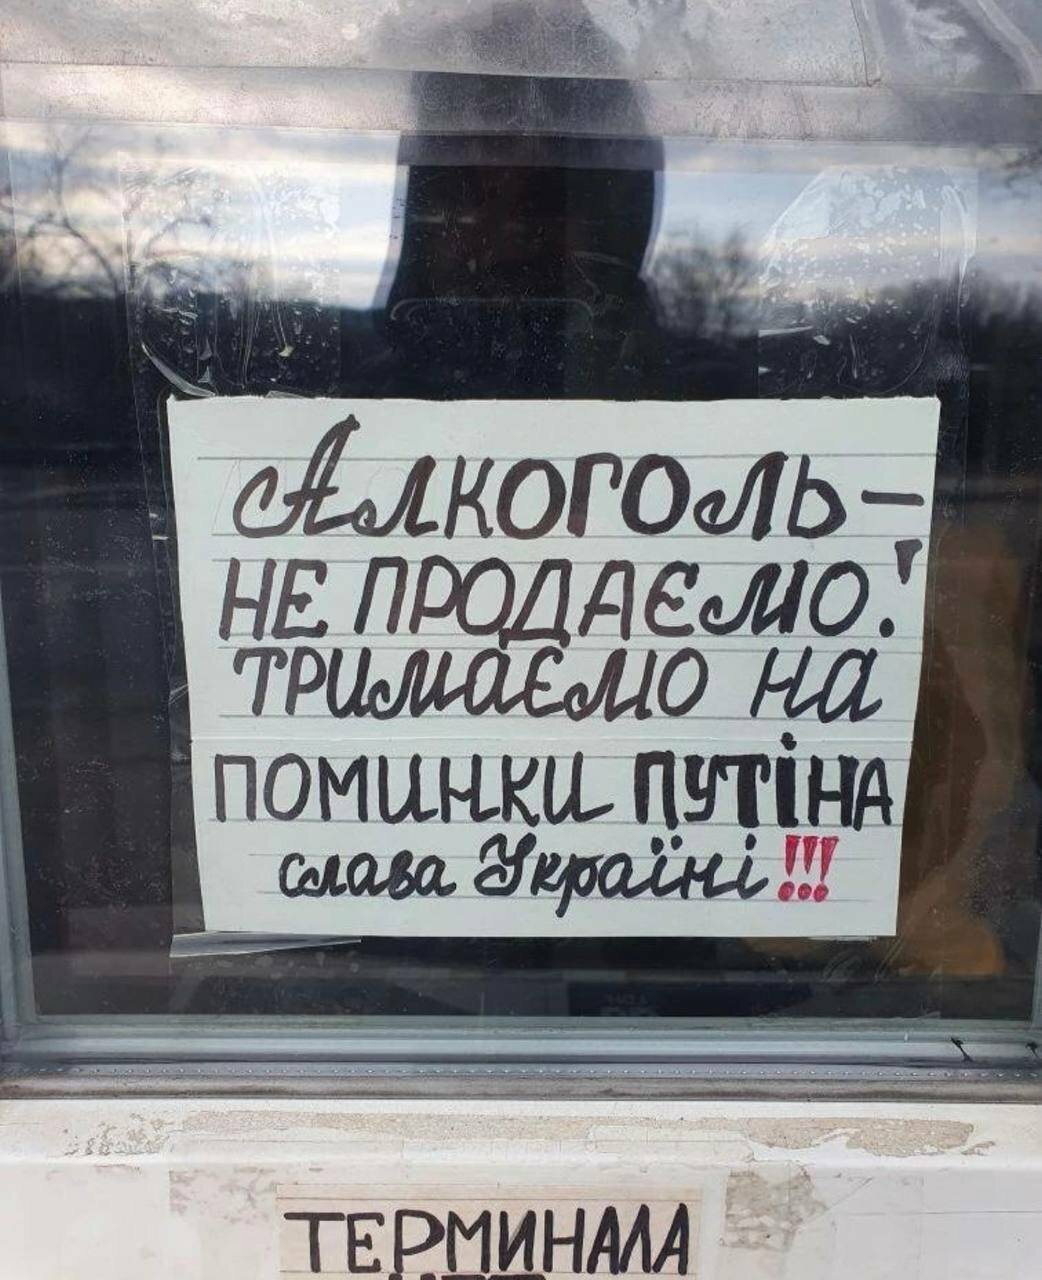 Алкоголь –
не продаємо!
тримаємо на
поминки путіна
слава Україні!!!
ТЕРМИНАЛА